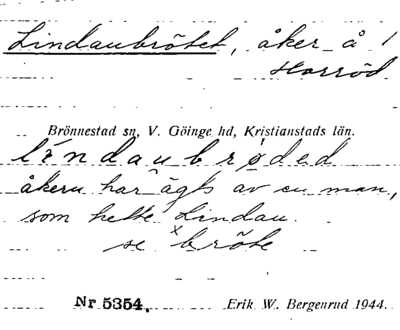 Lindaubrötet, åker å 1
Horröd
Brönnestad sn, V. Göinge hd, Kristianstads län.
lindaubrøded
åkern har ägts av en man,
som hette Lindau.
se × bröte
Nr 5354. Erik W. Bergenrud 1944.